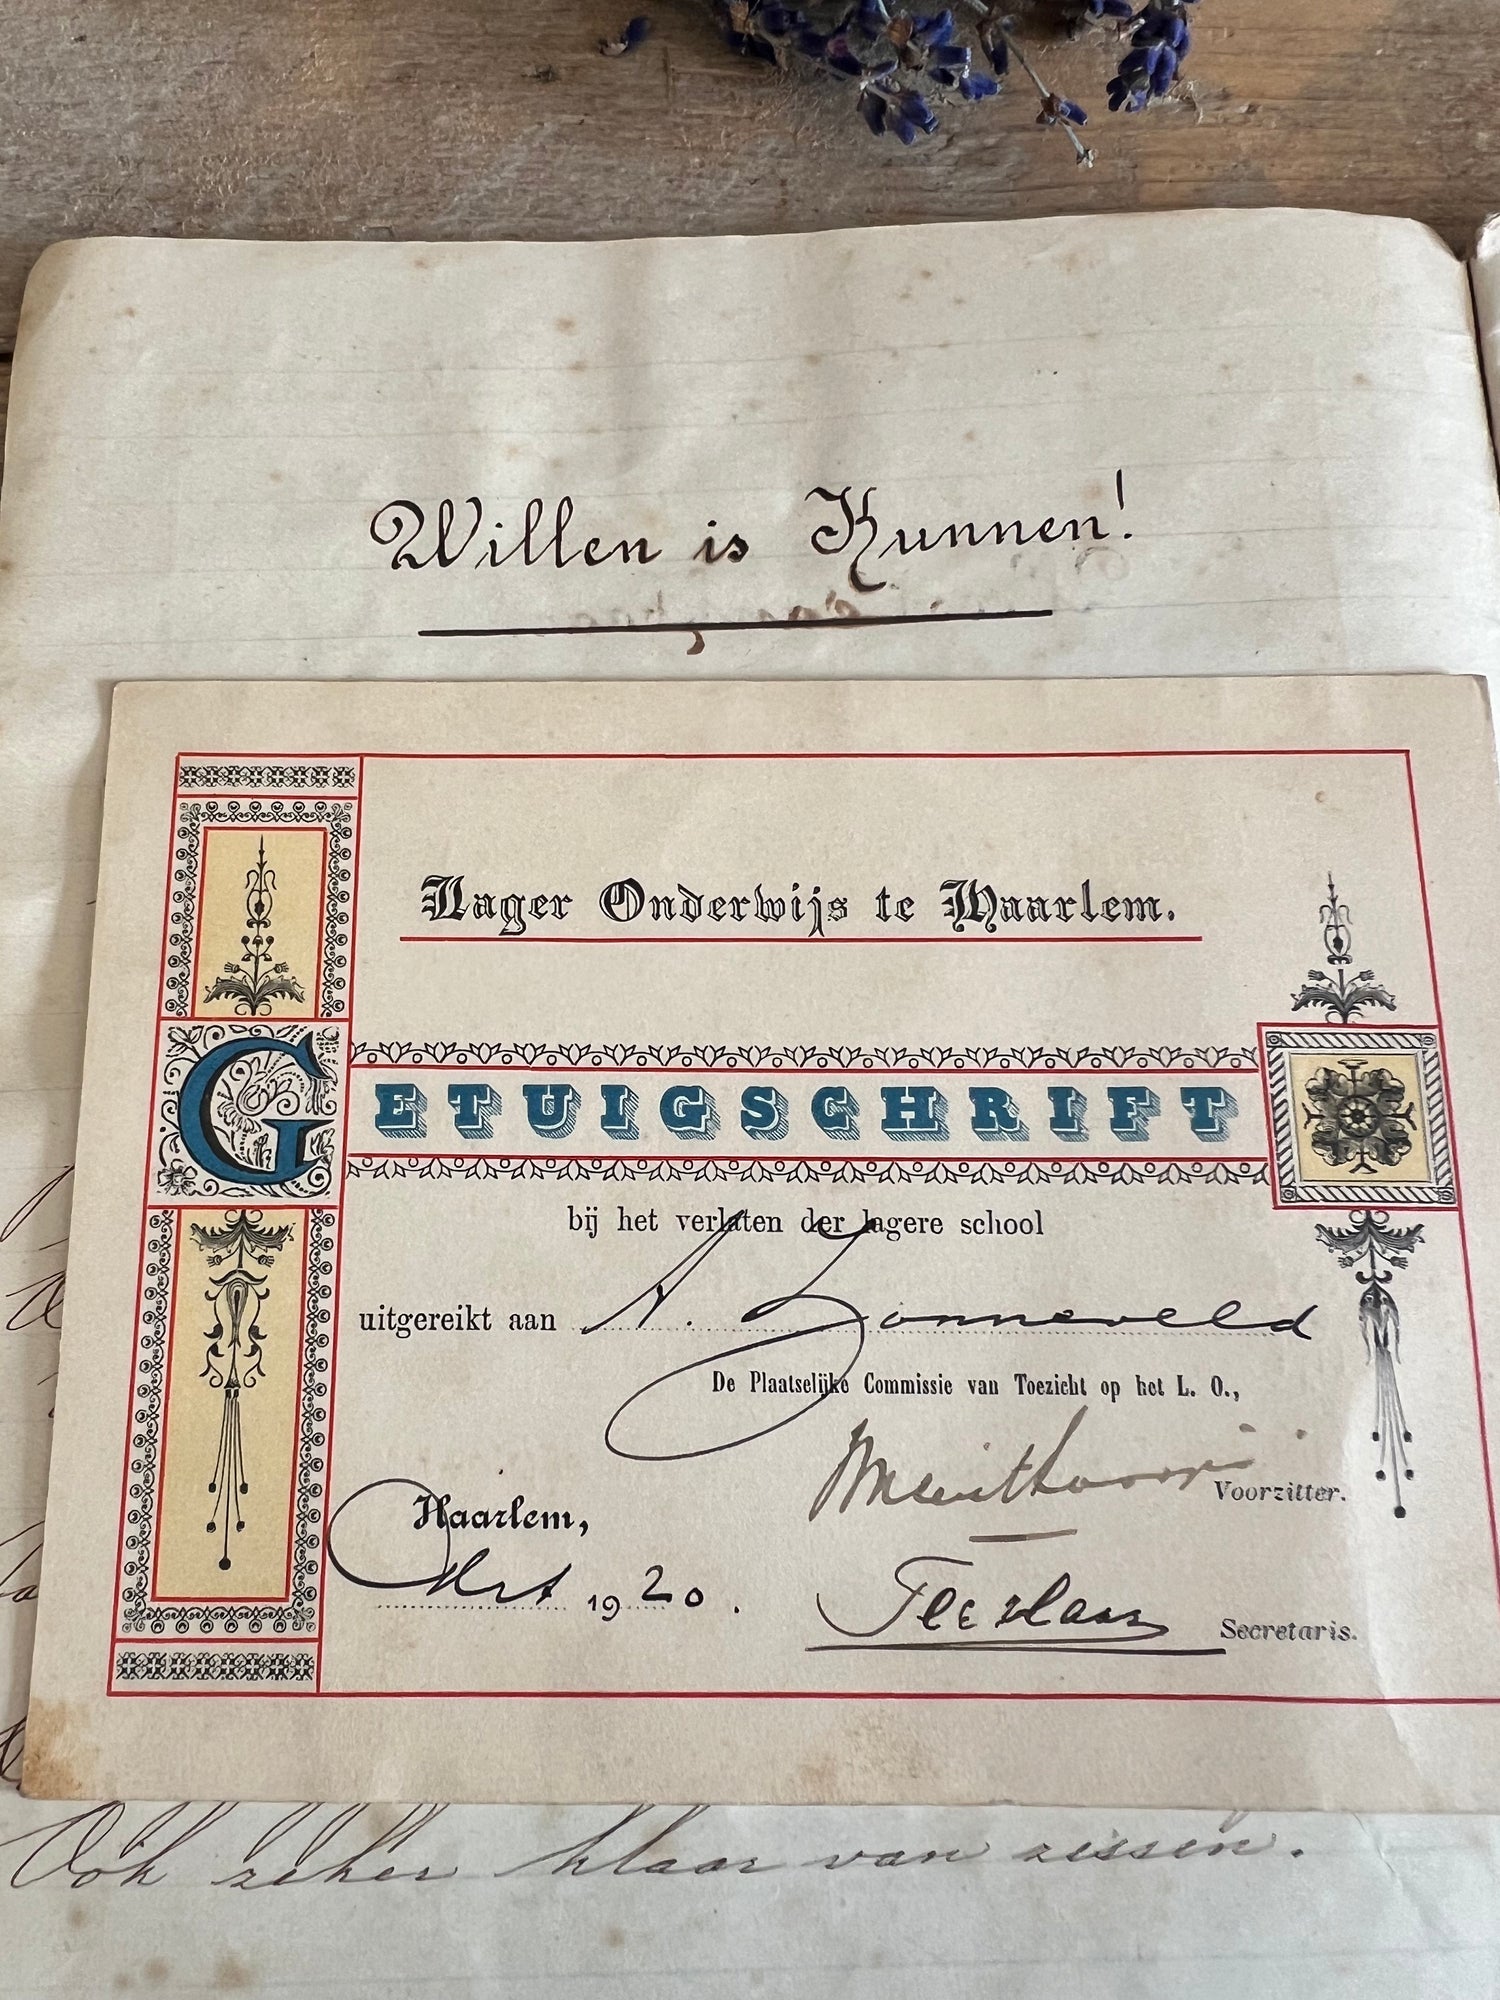 Willen is Kunnen!
Lager Onderwijs te Haarlem.
GETUIGSCHRIFT
bij het verlaten der lagere school
uitgereikt aan A. Zonneveld
De Plaatselijke Commissie van Toezicht op het L. O.,
Voorzitter.
Haarlem,
1920.
Secretaris.
Ook zeker klaar van zessen.